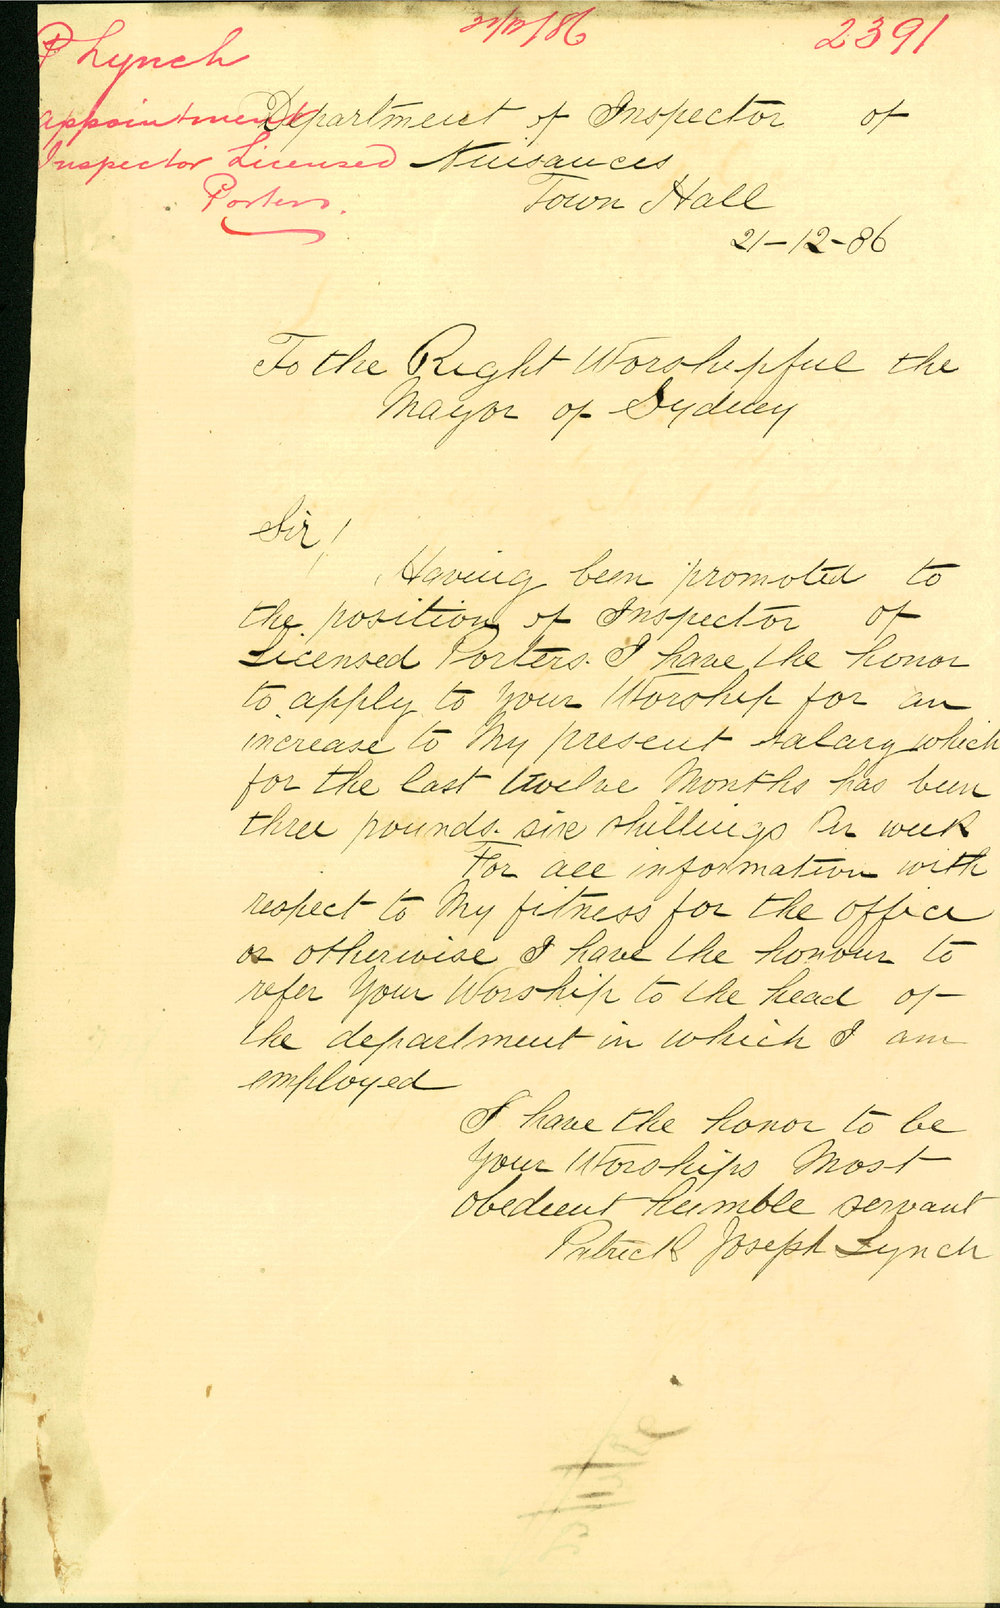 P Lynch
22/12/86
2391
appointment
Inspector Licensed
Porters.
Department of Inspector of
Nuisances
Town Hall
21-12-86
To the Right Worshipful the
Mayor of Sydney
Sir!
Having been promoted to
the position of Inspector of
Licensed Porters. I have the honor
to apply to Your Worship for an
increase to My present salary which
for the last twelve Months has been
three pounds. six shillings Per week
For all information with
respect to My fitness for the office
or otherwise I have the honour to
refer Your Worship to the head of
the department in which I am
employed
I have the honor to be
Your Worships Most
obedient humble servant
Patrick Joseph Lynch